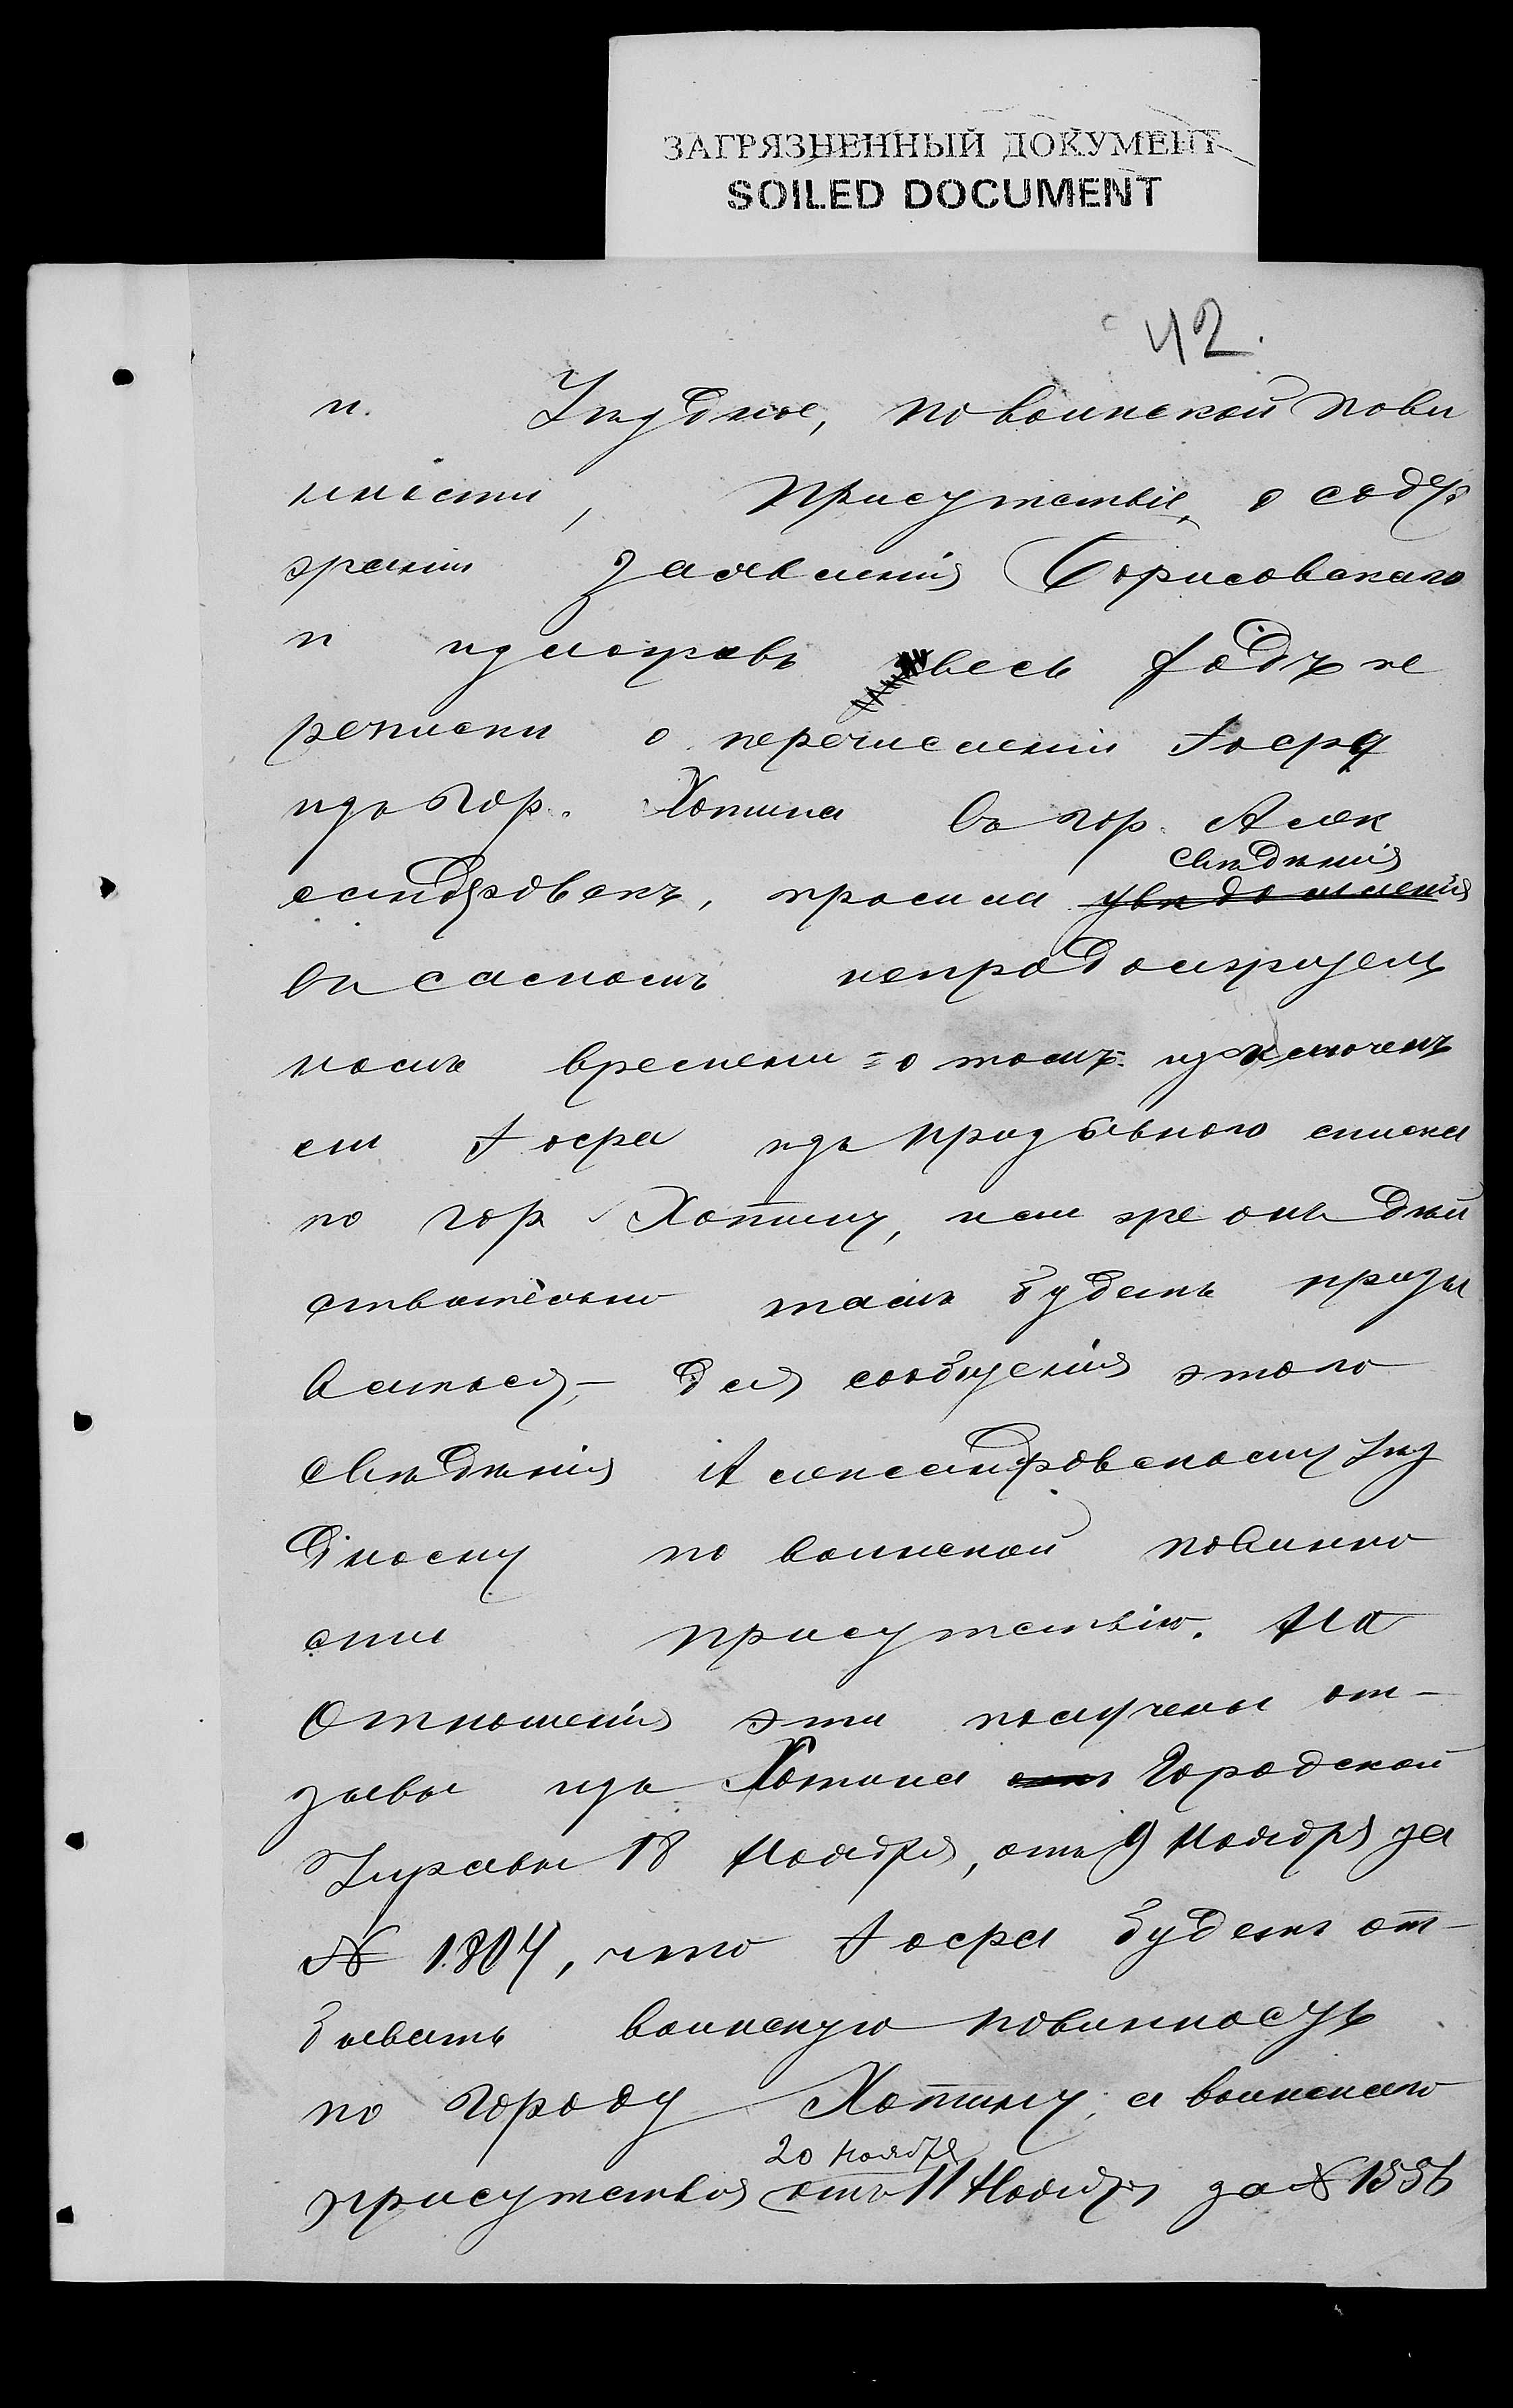 ЗАГРЯЗНЕННЫЙ ДОКУМЕНТ
SOILED DOCUMENT
42.
и Уѣздное, по воинской пови
нности, присутствіе, о содер
жаніи заявленія Борисовскаго
и изложивъ весь ходъ пе
реписки о перечисленіи Іоср
изъ гор. Хотина въ гор. Алек
сандровскъ, просила увѣдомленія
свѣдѣнія
въ самомъ непродолжитель
номъ времени о томъ: исключенъ
ли Іосра изъ призывного списка
по гор Хотину, или же онъ дѣй
ствительно тамъ будетъ призы
ваться, – для сообщенія этого
свѣдѣнія Александровскому Уѣз
дному по воинской повинно
сти присутствію. На
отношенія эти получены от-
зывы изъ Хотина Городской
Управы 18 Ноября, отъ 9 Ноября за
№ 1804, что Іосра будетъ от-
бывать воинскую повинность
по городу Хотину, а воинскаго
20 ноября
присутствія отъ 11 Ноября за № 1556